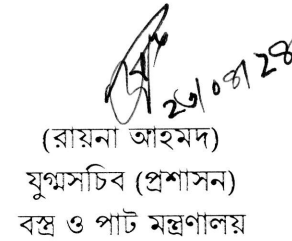 ২৩/০৪/২৪
(রায়না আহমদ)
যুগ্মসচিব (প্রশাসন)
বস্ত্র ও পাট মন্ত্রণালয়